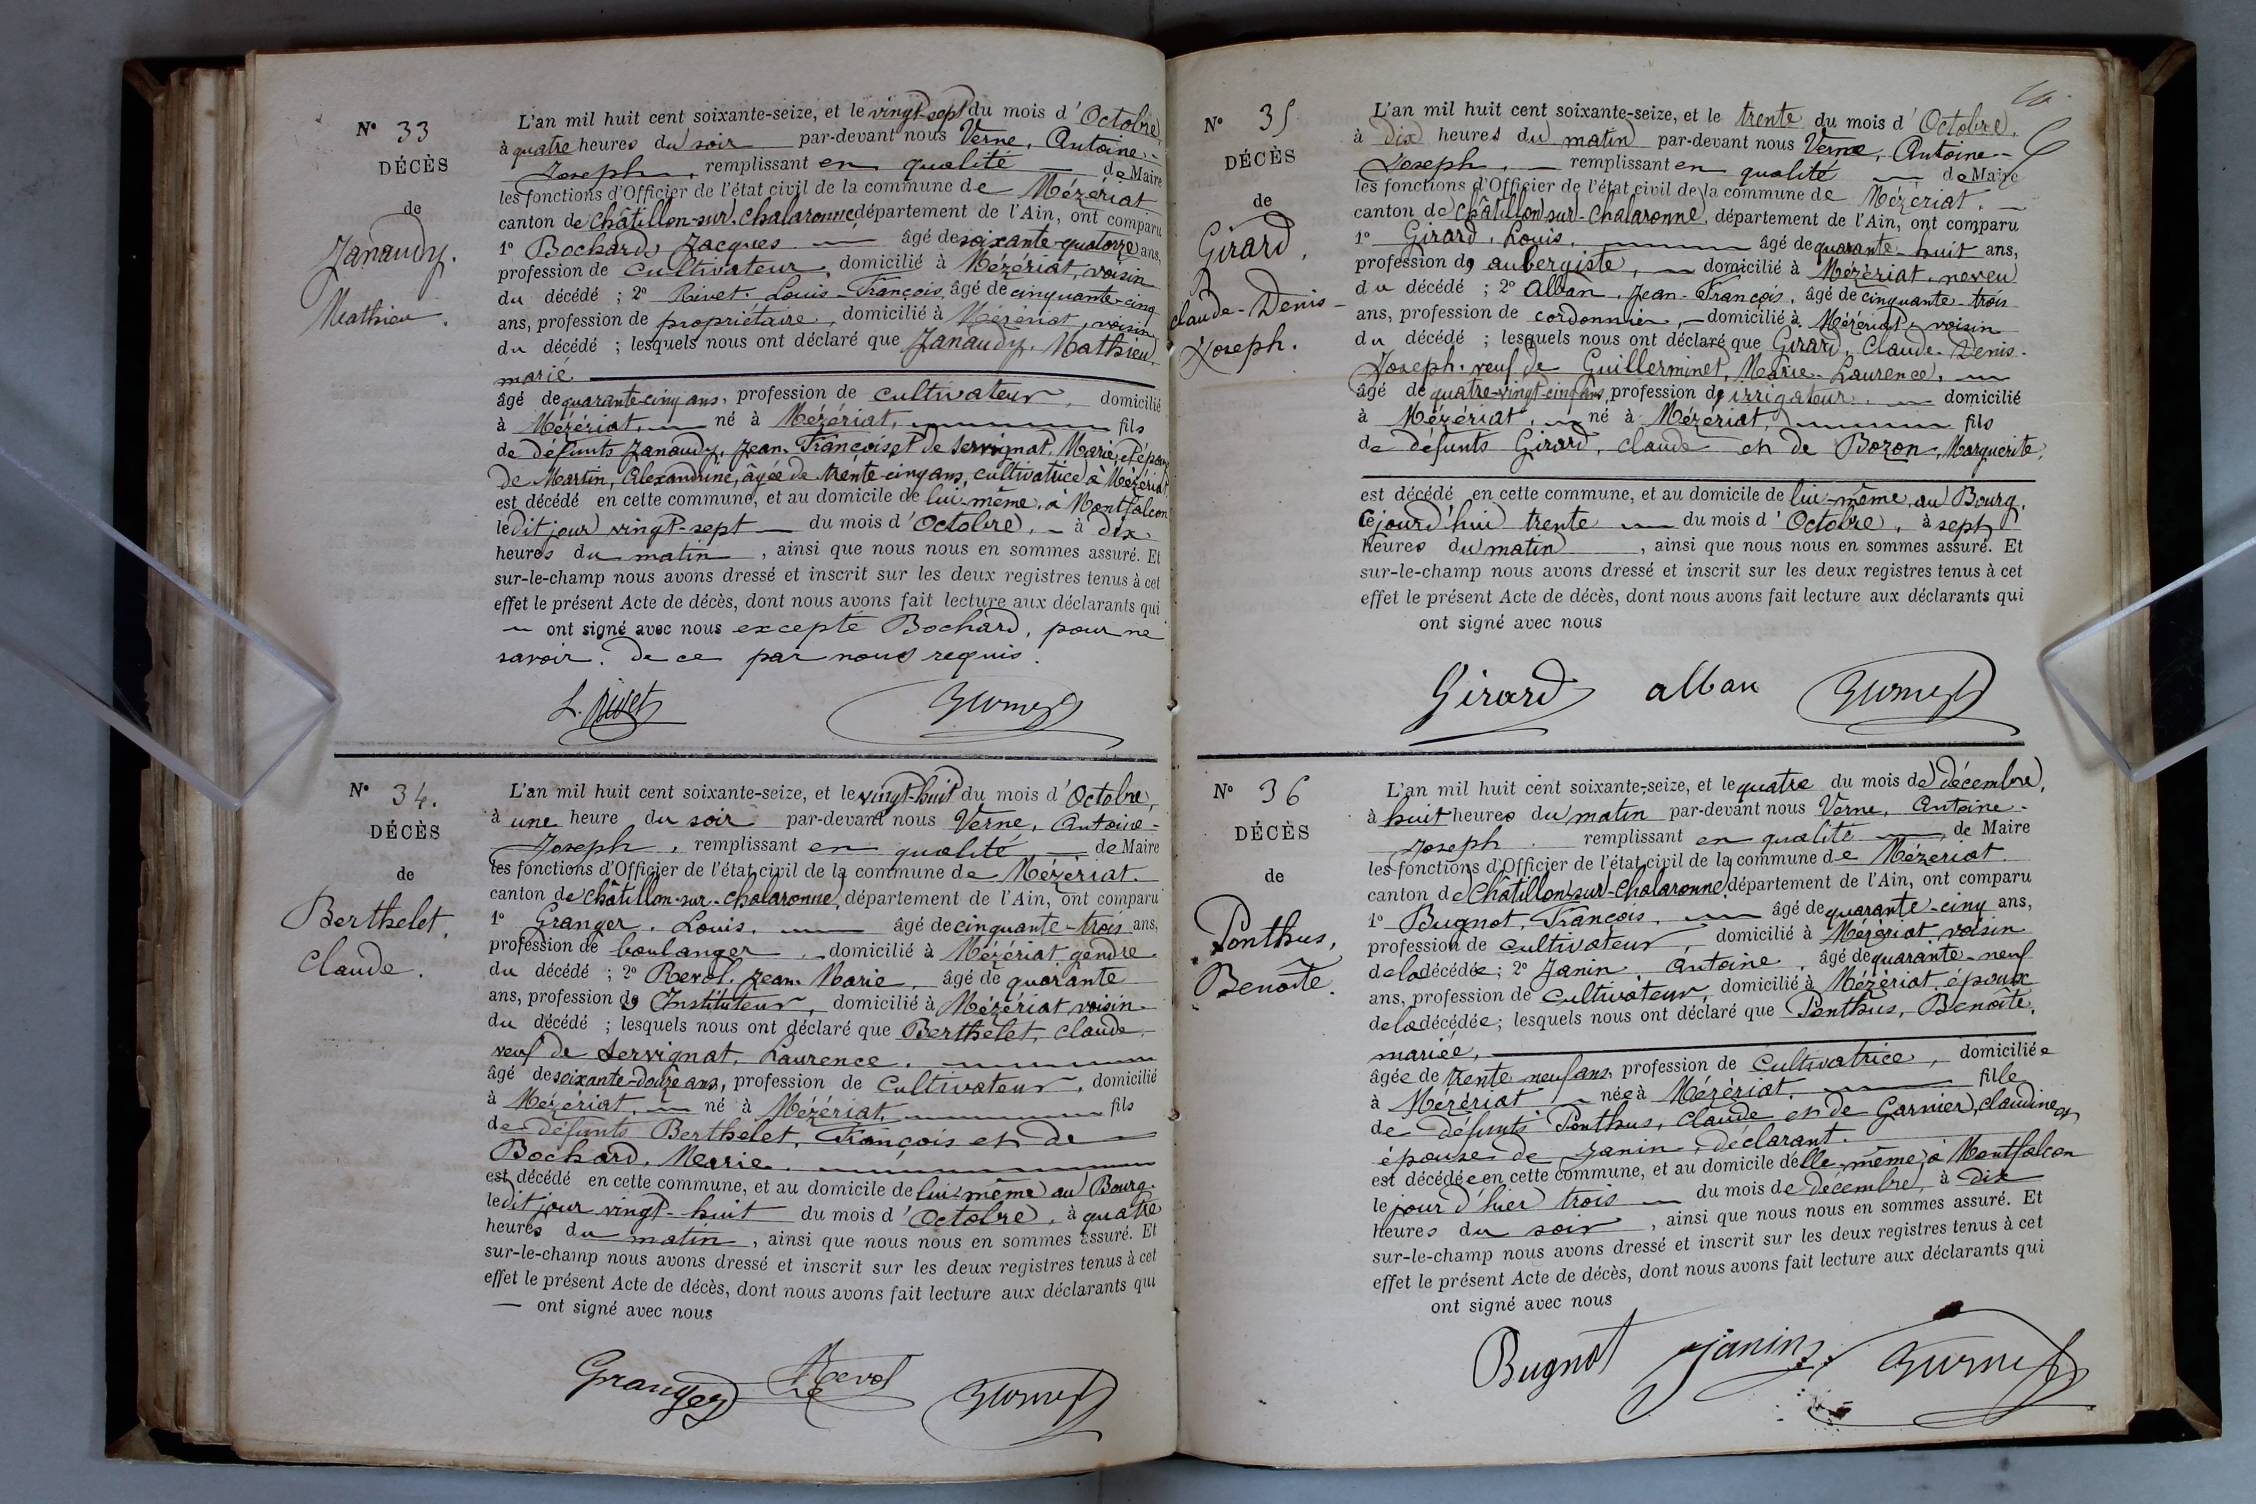 N° 33
DÉCÈS
de
Janaudy.
Mathieu.
L'an mil huit cent soixante-seize, et le vingt-sept du mois d'Octobre,
à quatre heures du soir par-devant nous Verne, Antoine-
Joseph, remplissant en qualité de Maire
les fonctions d'Officier de l'état civil de la commune de Mézériat
canton de Châtillon-sur-Chalaronne département de l'Ain, ont comparu
1° Bochard, Jacques âgé de soixante-quatorze ans,
profession de cultivateur, domicilié à Mézériat, voisin
du décédé ; 2° Rivet, Louis-François, âgé de cinquante-cinq
ans, profession de propriétaire, domicilié à Mézériat, voisin
du décédé ; lesquels nous ont déclaré que Janaudy, Mathieu,
marié.
âgé de quarante-cinq ans, profession de cultivateur, domicilié
à Mézériat, né à Mézériat, fils
de défunts Janaudy, Jean-François et de Servignat, Marie, et époux
de Martin, Alexandrine, âgée de trente-cinq ans, cultivatrice à Mézériat
est décédé en cette commune, et au domicile de lui-même, à Montfalcon
ledit jour vingt-sept du mois d'Octobre, à dix
heures du matin, ainsi que nous nous en sommes assuré. Et
sur-le-champ nous avons dressé et inscrit sur les deux registres tenus à cet
effet le présent Acte de décès, dont nous avons fait lecture aux déclarants qui
ont signé avec nous excepté Bochard, pour ne
savoir. De ce par nous requis.
L. Rivet
N° 34.
DÉCÈS
de
Berthelet,
Claude.
L'an mil huit cent soixante-seize, et le vingt-huit du mois d'Octobre,
à une heure du soir par-devant nous Verne, Antoine-
Joseph, remplissant en qualité de Maire
les fonctions d'Officier de l'état civil de la commune de Mézériat.
canton de Châtillon-sur-Chalaronne, département de l'Ain, ont comparu
1° Granger, Louis, âgé de cinquante-trois ans,
profession de boulanger, domicilié à Mézériat, gendre
du décédé ; 2° Revol, Jean Marie, âgé de quarante
ans, profession de Instituteur, domicilié à Mézériat, voisin
du décédé ; lesquels nous ont déclaré que Berthelet, Claude,
veuf de Servignat, Laurence,
âgé de soixante-douze ans, profession de Cultivateur, domicilié
à Mézériat, né à Mézériat, fils
de défunts Berthelet, François et de
Bochard, Marie.
est décédé en cette commune, et au domicile de lui-même au Bourg.
ledit jour vingt-huit du mois d'Octobre, à quatre
heures du matin, ainsi que nous nous en sommes assuré. Et
sur-le-champ nous avons dressé et inscrit sur les deux registres tenus à cet
effet le présent Acte de décès, dont nous avons fait lecture aux déclarants qui
ont signé avec nous
Granger Revol
N° 35
DÉCÈS
de
Girard,
Claude-Denis-
Joseph.
L'an mil huit cent soixante-seize, et le trente du mois d'Octobre,
à dix heures du matin par-devant nous Verne, Antoine-
Joseph, remplissant en qualité de Maire
les fonctions d'Officier de l'état civil de la commune de Mézériat.
canton de Châtillon-sur-Chalaronne, département de l'Ain, ont comparu
1° Girard, Louis, âgé de quarante-huit ans,
profession de aubergiste, domicilié à Mézériat, neveu
du décédé ; 2° Alban, Jean-François, âgé de cinquante-trois
ans, profession de cordonnier, domicilié à Mézériat, voisin
du décédé ; lesquels nous ont déclaré que Girard, Claude-Denis-
Joseph, veuf de Guillerminet, Marie-Laurence,
âgé de quatre-vingt-cinq ans, profession de irrigateur, domicilié
à Mézériat, né à Mézériat, fils
de défunts Girard, Claude et de Bozon, Marguerite,
est décédé en cette commune, et au domicile de lui-même, au Bourg,
Cejourd'hui trente du mois d'Octobre, à sept
heures du matin, ainsi que nous nous en sommes assuré. Et
sur-le-champ nous avons dressé et inscrit sur les deux registres tenus à cet
effet le présent Acte de décès, dont nous avons fait lecture aux déclarants qui
ont signé avec nous
Girard alban
N° 36
DÉCÈS
de
Ponthus,
Benoîte.
L'an mil huit cent soixante-seize, et le quatre du mois de décembre,
à huit heures du matin par-devant nous Verne, Antoine-
Joseph. remplissant en qualité de Maire
les fonctions d'Officier de l'état civil de la commune de Mézériat.
canton de Châtillon-sur-Chalaronne, département de l'Ain, ont comparu
1° Bugnot, François, âgé de quarante-cinq ans,
profession de cultivateur, domicilié à Mézériat, voisin
de la décédée ; 2° Janin, Antoine, âgé de quarante-neuf
ans, profession de Cultivateur, domicilié à Mézériat, époux
de la décédée ; lesquels nous ont déclaré que Ponthus, Benoîte,
mariée,
âgée de trente neuf ans, profession de Cultivatrice, domiciliée
à Mézériat née à Mézériat, fille
de défunts Ponthus, Claude et de Garnier, Claudine et
épouse de Janin, déclarant.
est décédée en cette commune, et au domicile d'elle-même, à Montfalcon
le jour d'hier trois du mois de décembre, à dix
heures du soir, ainsi que nous nous en sommes assuré. Et
sur-le-champ nous avons dressé et inscrit sur les deux registres tenus à cet
effet le présent Acte de décès, dont nous avons fait lecture aux déclarants qui
ont signé avec nous
Bugnot Janin